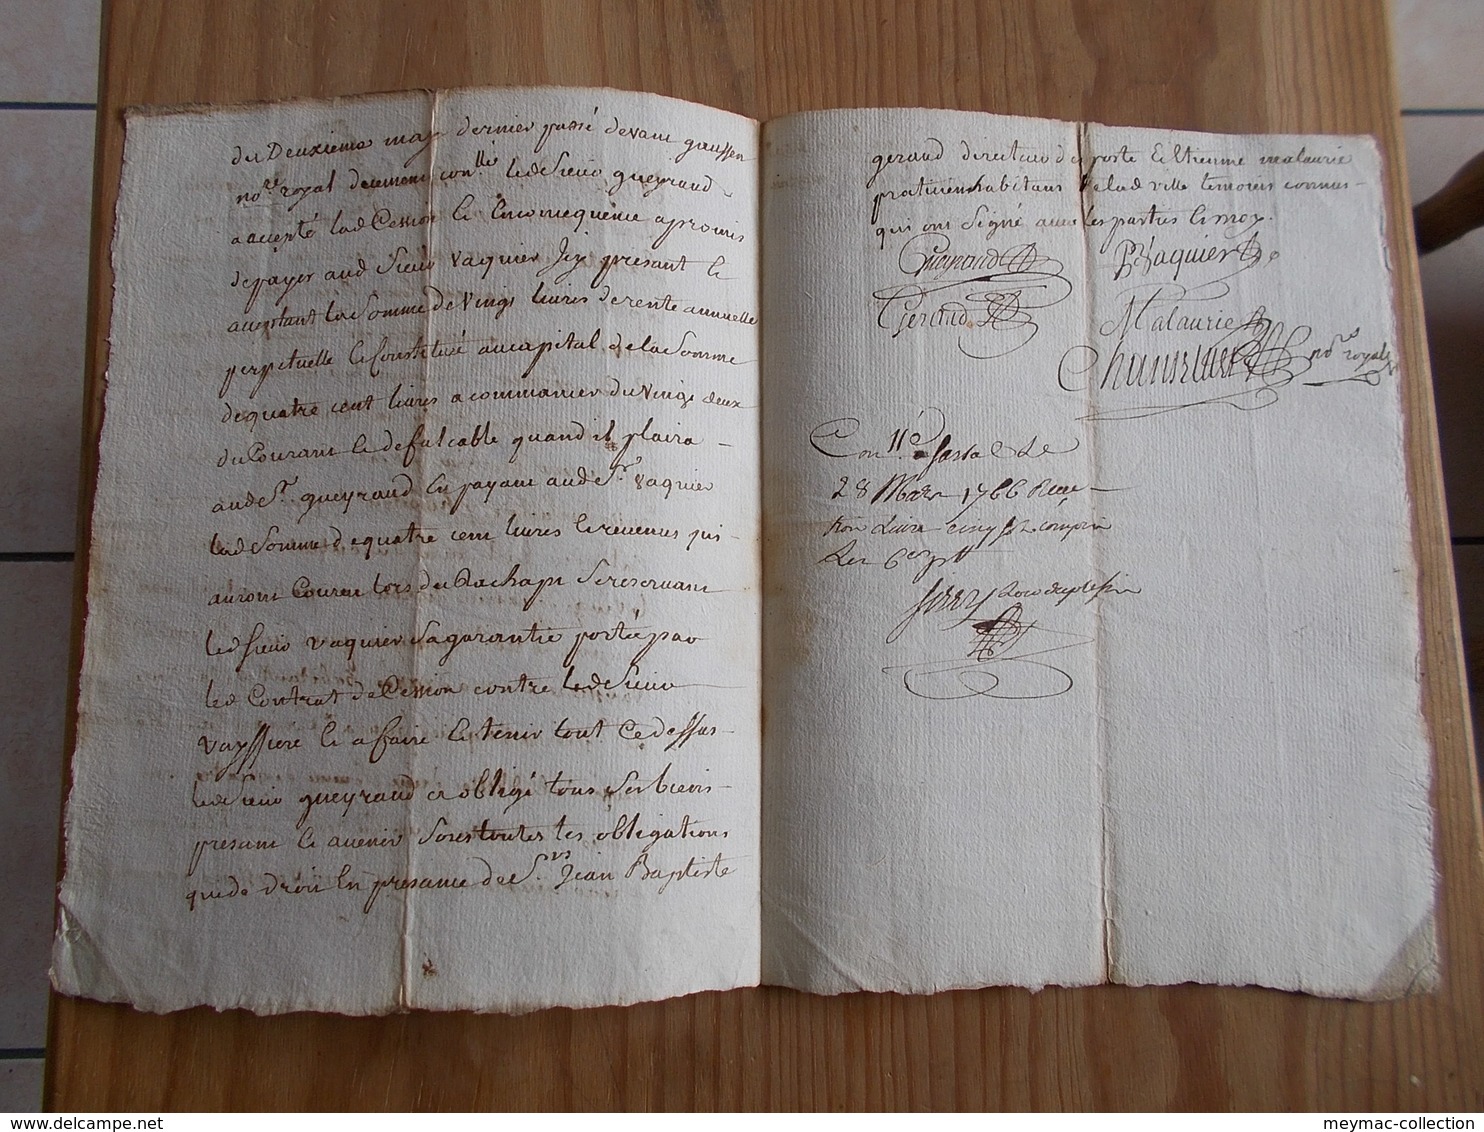 du Deuxieme may dernier passé devant gaussen
no.re royal deument con.llé led Sieur gueyrand
a accepté lad Cession Et En consequence a promis
de payer aud Sieur Vaquier Jcy présant Et
acceptant la Somme de Vingt livres de rente annuelle
perpetuelle Et Constitué au capital de la Somme
de quatre cent livres a commancer du Vingt deux
du Courant Et defalcable quand il plaira
aud Sr. gueyrand En payant aud Sr. Vaquier
lad Somme de quatre cent livres Et revenus qui
auront Couru lors du Rachapt Se reservant
led Sieur Vaquier Sa garantie portée par
led Contrat de Cession contre led Sieur
Vayssiere Et a faire Et tenir tout Ce dessus
led Sieur gueyrand a obligé tous Ses biens
presant Et avenir Sous toutes les obligations
que de droit En presance de Srs. Jean Baptiste
gerand directeur des poste Et Etienne malaurie
praticien habitans de lad ville temoins connus
qui ont Signé avec les parties Et moy.
Gueyrand P Vaquier
Gerand Malaurie
no.re royal
Con.llé
28 Mars 1766 Receu
Livre cinq s compris
Les 6